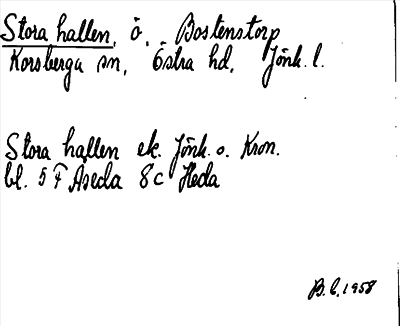 Stora hallen, ö, Bostenstorp
Korsberga sn, Östra hd, Jönk. l.
Stora hallen ek. Jönk. o. Kron.
bl. 5 F Åseda 8 c Heda
B.E. 1958